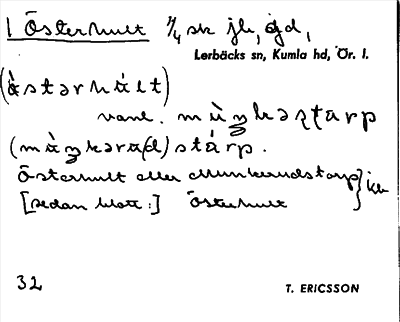 1 Österhult 7/4 sk jb, gd,
Lerbäcks sn, Kumla hd, Ör. l.
(ö̀stərhúlt)
vanl. mùŋkəʂʈarp
(mùŋkəra(d)stárp.
Österhult eller Munkerudstorp } jb
[sedan blott:] Österhult
32 T. ERICSSON